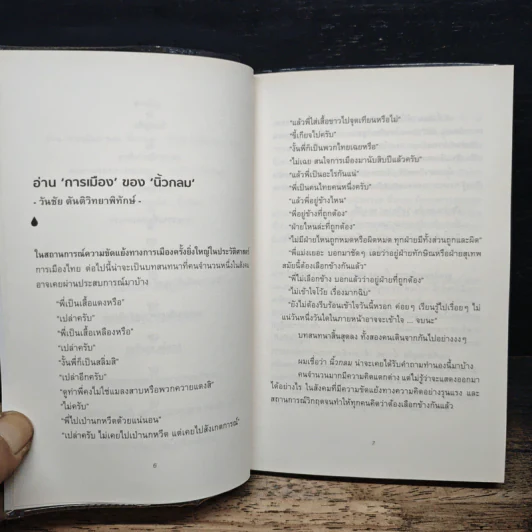 อ่าน 'การเมือง' ของ 'นิ้วกลม'
- วันชัย ตันติวิทยาพิทักษ์ -
ในสถานการณ์ความขัดแย้งทางการเมืองครั้งยิ่งใหญ่ในประวัติศาสตร์
การเมืองไทย ต่อไปนี้น่าจะเป็นบทสนทนาที่คนจำนวนหนึ่งในสังคม
อาจเคยผ่านประสบการณ์มาบ้าง
"พี่เป็นเสื้อแดงหรือ"
"เปล่าครับ"
"พี่เป็นเสื้อเหลืองหรือ"
"เปล่าครับ"
"งั้นพี่ก็เป็นสลิ่มสิ"
"เปล่าอีกครับ"
"ดูท่าพี่คงไม่ใช่แมลงสาบหรือพวกควายแดงสิ"
"ไม่ครับ"
"พี่ไปเป่านกหวีดด้วยแน่นอน"
"เปล่าครับ ไม่เคยไปเป่านกหวีด แต่เคยไปสังเกตการณ์"
6
"แล้วพี่ใส่เสื้อขาวไปจุดเทียนหรือไม่"
"ขี้เกียจไปครับ"
"งั้นพี่ก็เป็นพวกไทยเฉยหรือ"
"ไม่เฉย สนใจการเมืองมานับสิบปีแล้วครับ"
"แล้วพี่เป็นอะไรกันแน่"
"พี่เป็นคนไทยคนหนึ่งครับ"
"แล้วพี่อยู่ข้างไหน"
"พี่อยู่ข้างที่ถูกต้อง"
"ฝ่ายไหนล่ะที่ถูกต้อง"
"ไม่มีฝ่ายไหนถูกหมดหรือผิดหมด ทุกฝ่ายมีทั้งส่วนถูกและผิด"
"พี่แม่งเยอะ บอกมาชัดๆ เลยว่าอยู่ฝ่ายทักษิณหรือฝ่ายสุเทพ
สมัยนี้ต้องเลือกข้างกันแล้ว"
"พี่ไม่เลือกข้าง บอกแล้วว่าอยู่ฝ่ายที่ถูกต้อง"
"ไม่เข้าใจโว้ย เรื่องมากฉิบ"
"ยังไม่ต้องรีบร้อนเข้าใจวันนี้หรอก ค่อยๆ เรียนรู้ไปเรื่อยๆ ไม่
แน่วันหนึ่งวันใดในภายหน้าอาจจะเข้าใจ ... จบนะ"
บทสนทนาสิ้นสุดลง ทั้งสองคนเดินจากกันไปอย่างงงๆ
ผมเชื่อว่า นิ้วกลม น่าจะเคยได้รับคำถามทำนองนี้มาบ้าง
คนจำนวนมากมีความคิดแตกต่าง แต่ไม่รู้ว่าจะแสดงออกมา
ได้อย่างไร ในสังคมที่มีความขัดแย้งทางความคิดอย่างรุนแรง และ
สถานการณ์วิกฤตจนทำให้ทุกคนคิดว่าต้องเลือกข้างกันแล้ว
7